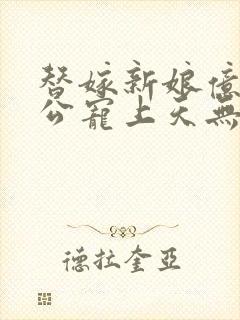 替嫁新娘億
公寵上天無
德拉奎亞